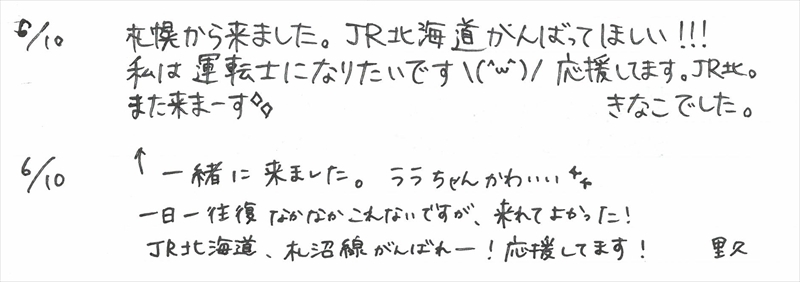 6/10 札幌から来ました。JR北海道がんばってほしい!!!
私は運転士になりたいです\(^w^)/ 応援してます。JR北。
また来まーす◇◇ きなこでした。
6/10 ↑一緒に来ました。ララちゃんかわいい
一日一往復なかなかこれないですが、来れてよかった!
JR北海道、札沼線がんばれー!応援してます! 里久